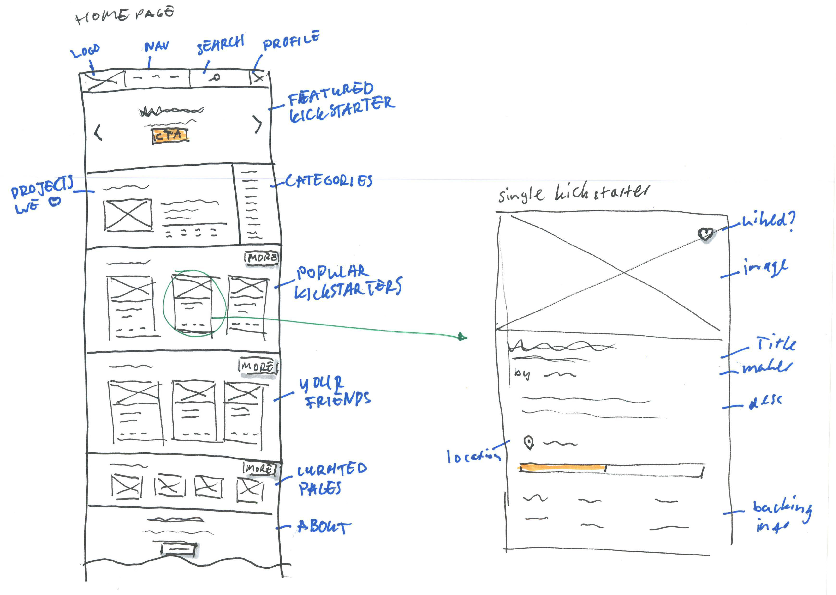 HOME PAGE
LOGO
NAV
SEARCH
PROFILE
FEATURED
KICKSTARTER
CTA
PROJECTS
WE ♡
CATEGORIES
MORE
POPULAR
KICKSTARTERS
MORE
YOUR
FRIENDS
MORE
CURATED
PAGES
ABOUT
single kickstarter
liked?
image
Title
by
maker
desc
location
backing
info